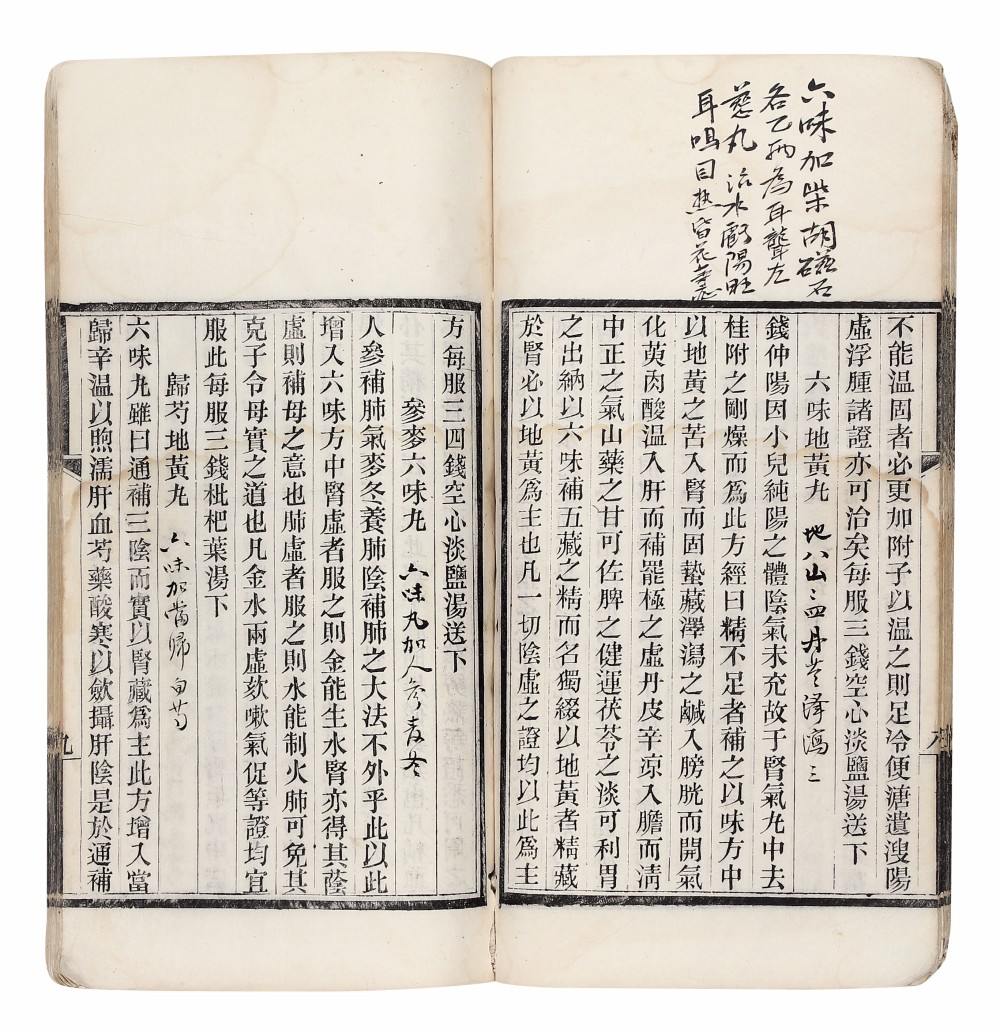 六味加柴胡磁石
各乙两為耳聾左
慈丸 治水虧陽旺
耳鳴目熱昏花
不能温固者必更加附子以温之則足冷便溏遺溲陽
虛浮腫諸證亦可治矣每服三錢空心淡鹽湯送下
六味地黃丸 地八山三四丹苓澤瀉三
錢仲陽因小兒純陽之體陰氣未充故于腎氣丸中去
桂附之剛燥而爲此方經曰精不足者補之以味方中
以地黃之苦入腎而固蟄藏澤瀉之鹹入膀胱而開氣
化萸肉酸温入肝而補罷極之虛丹皮辛凉入膽而淸
中正之氣山藥之甘可佐脾之健運茯苓之淡可利胃
之出納以六味補五藏之精而名獨綴以地黃者精藏
於腎必以地黃爲主也凡一切陰虛之證均以此爲主
八
方每服三四錢空心淡鹽湯送下
參麥六味丸 六味丸加人參麦冬
人參補肺氣麥冬養肺陰補肺之大法不外乎此以此
增入六味方中腎虛者服之則金能生水腎亦得其蔭
虛則補母之意也肺虛者服之則水能制火肺可免其
克子令母實之道也凡金水兩虛欬嗽氣促等證均宜
服此每服三錢枇杷葉湯下
歸芍地黃丸 六味加當歸白芍
六味丸雖曰通補三陰而實以腎藏爲主此方增入當
歸辛温以煦濡肝血芍藥酸寒以斂攝肝陰是於通補
九